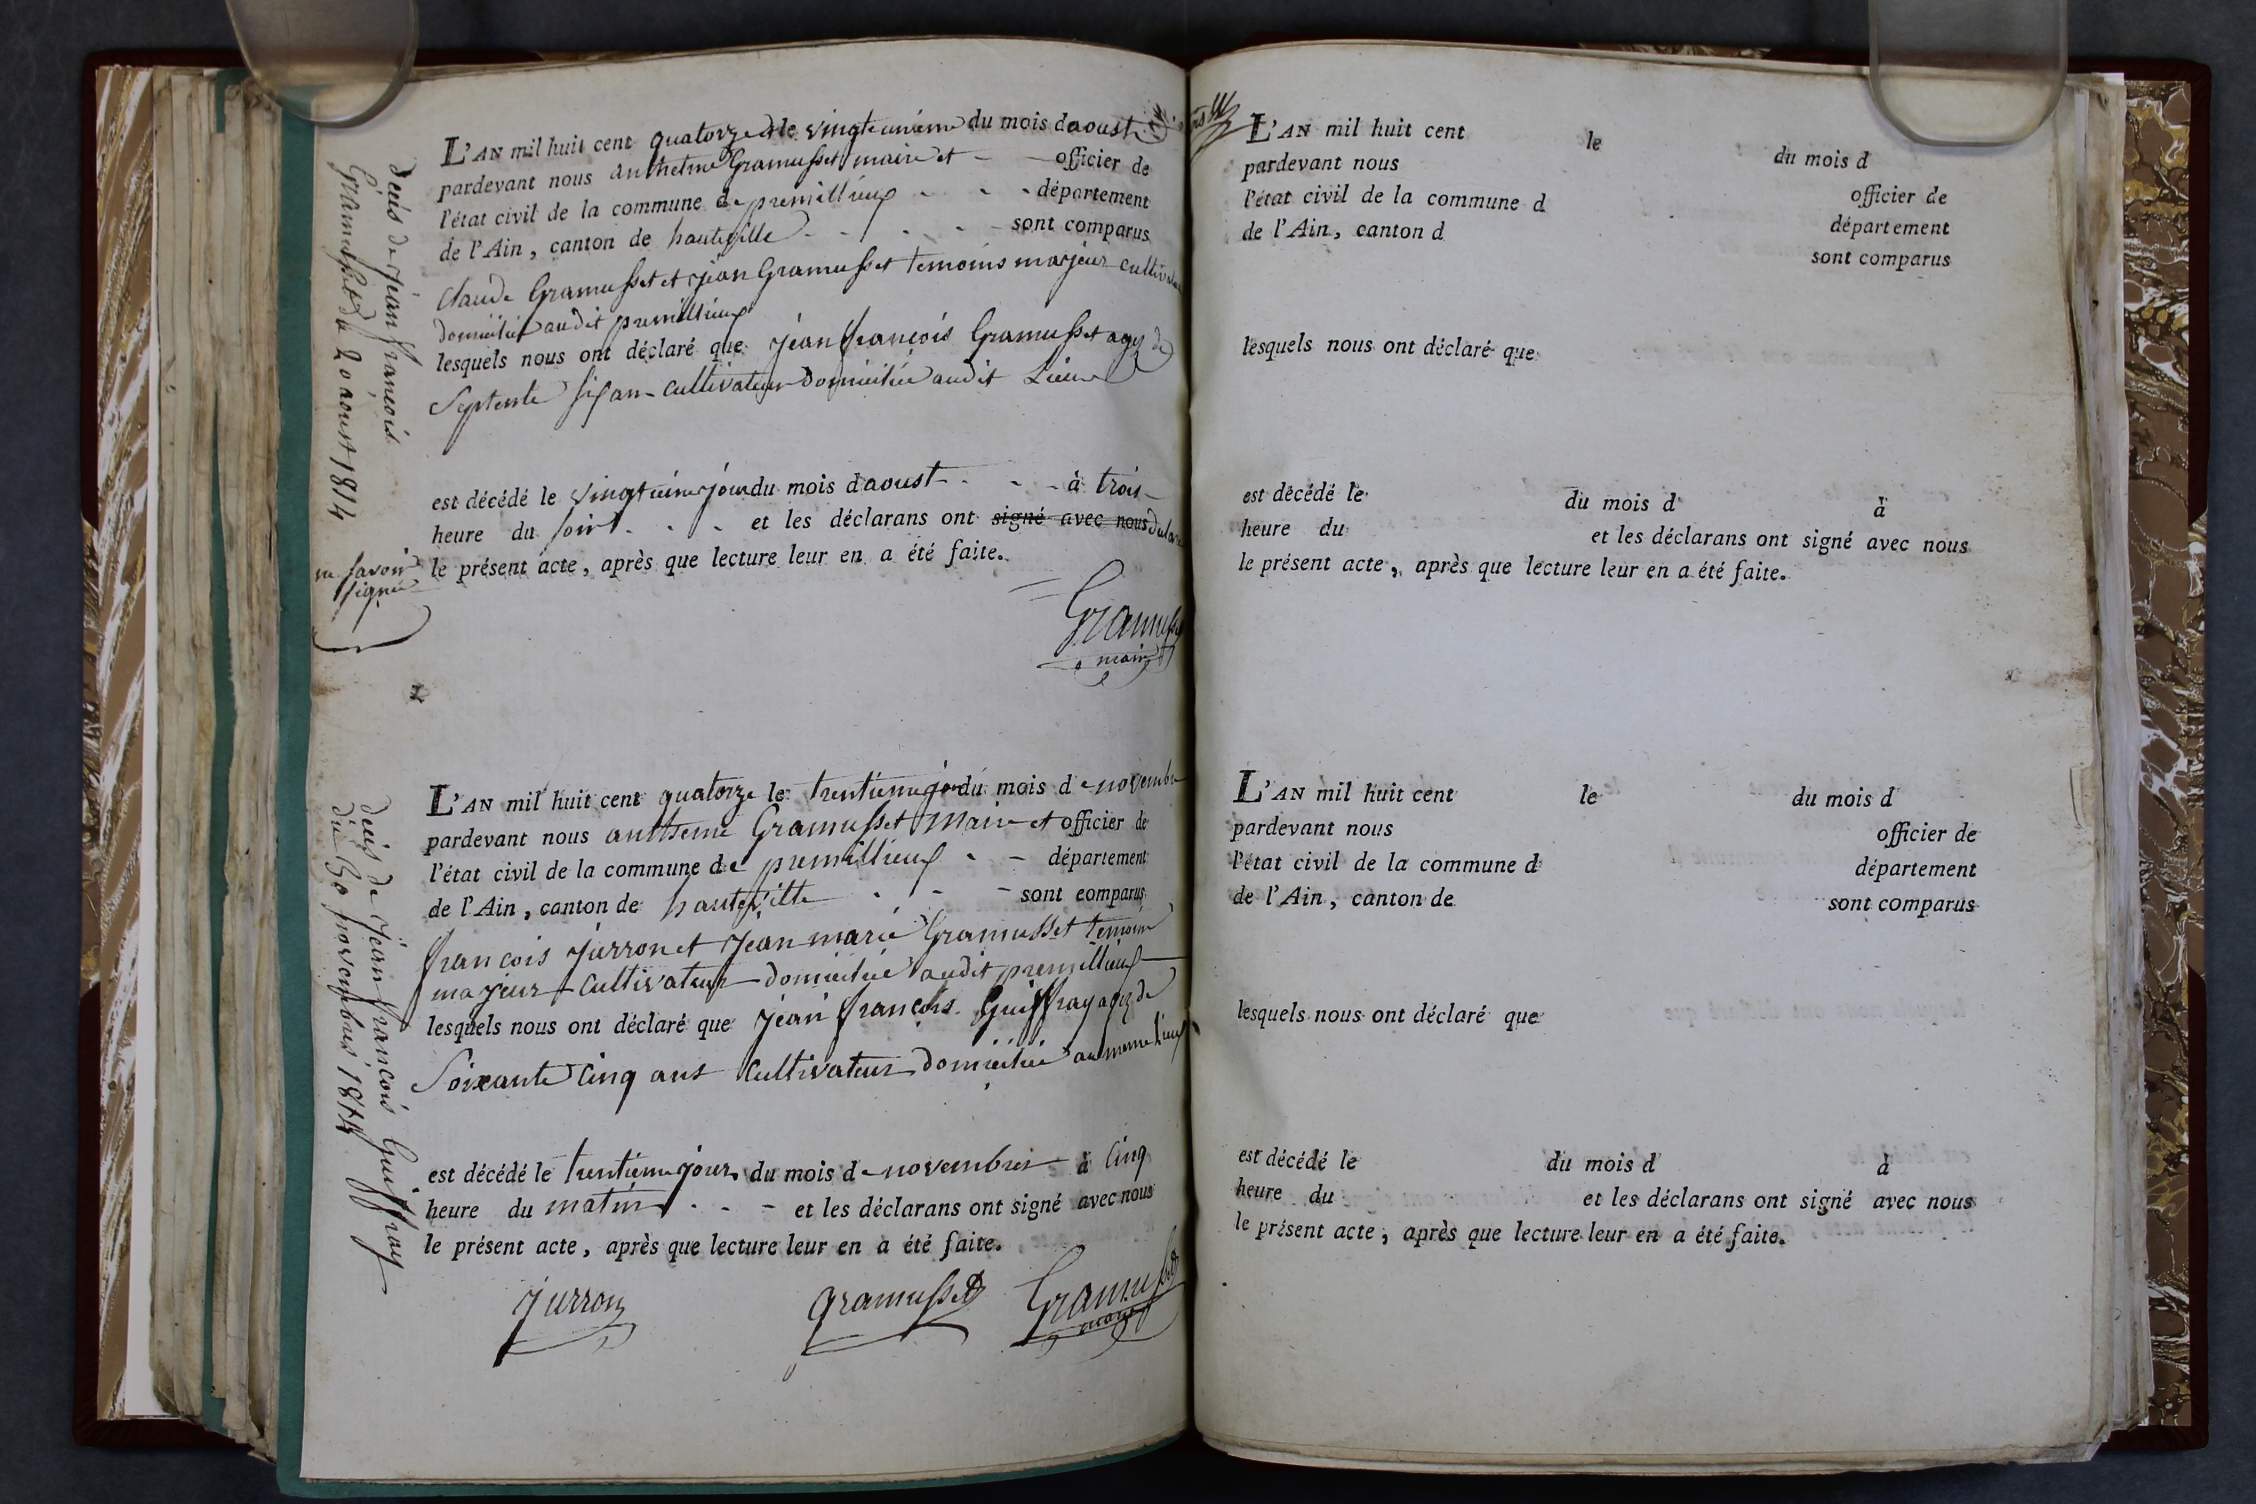 L'AN mil huit cent quatorze le vingteunieme du mois daoust
pardevant nous anthelme Gramusset maire et - - officier de
l'état civil de la commune de premillieux - - - département
de l'Ain, canton de hauteville - - - - sont comparus
Claude Gramusset et jean Gramusset temoins majeur
domicilié audit premillieux
lesquels nous ont déclaré que jean françois Gramusset agez de
Septente six an cultivateur domicilié audit Lieux
est décédé le jour du mois daoust - - - à trois
heure du soir - - - et les déclarans ont signé avec nous
le présent acte, après que lecture leur en a été faite.
ne savoir
signé
Gramusset
maire
décès de jean françois
Gramusset du 20 aoust 1814
L'AN mil huit cent quatorze le trentieme jour du mois de novembre
pardevant nous Gramusset maire et officier de
l'état civil de la commune de premillieux - - département
de l'Ain, canton de hauteville - - - sont comparus
françois jurron et jean marie Gramusset temoin
majeur cultivateur domicilié audit premillieux
lesquels nous ont déclaré que jean françois Guiffray agez de
Soixante Cinq ans Cultivateur domicilié au meme Lieux
est décédé le trentieme jour du mois de novembre à Cinq
heure du matin - - - et les déclarans ont signé avec nous
le présent acte, après que lecture leur en a été faite.
jurron gramusset Gramusset
maire
décès de jean françois Guiffray
du 30 novembre 1814
L'AN mil huit cent le du mois d
pardevant nous officier de
l'état civil de la commune d département
de l'Ain, canton d sont comparus
lesquels nous ont déclaré que
est décédé le du mois d à
heure du et les déclarans ont signé avec nous
le présent acte, après que lecture leur en a été faite.
L'AN mil huit cent le du mois d
pardevant nous officier de
l'état civil de la commune d département
de l'Ain, canton de sont comparus
lesquels nous ont déclaré que
est décédé le du mois d à
heure du et les déclarans ont signé avec nous
le présent acte, après que lecture leur en a été faite.